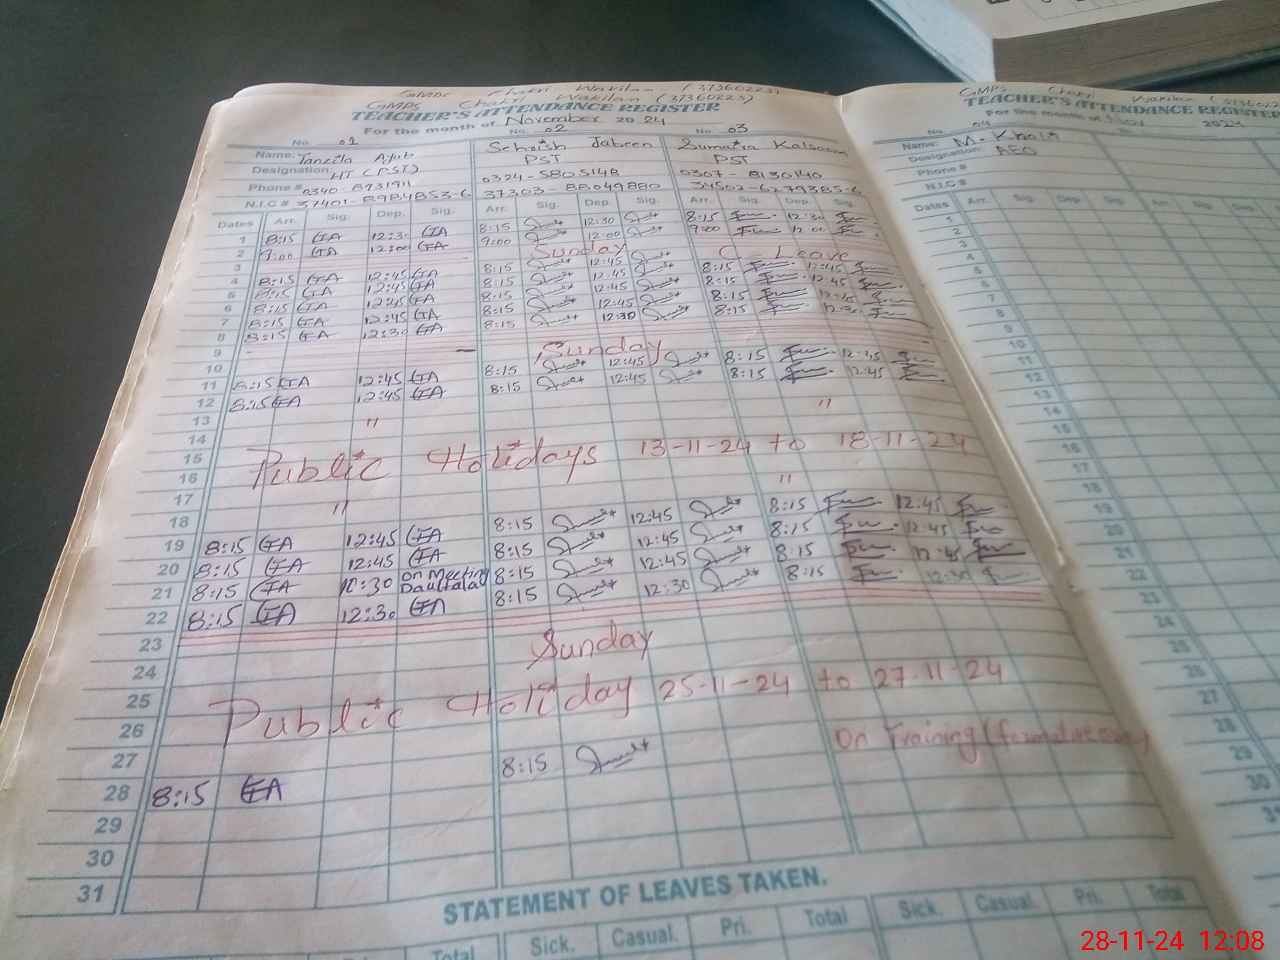 GMPS Chakri Wakilan (37360223)
GMPS Chakri Wakilan (37360223)
TEACHER'S ATTENDANCE REGISTER
For the month of November 2024
No. 01 No. 02 No. 03
Name: Tanzila Ayub Sehrish Jabeen Sumaira Kalsoom
Designation: HT (PST) PST PST
Phone # 0340-8931911 0324-5805148 0307-8130140
N.I.C # 37401-8984853-6 37303-88049880
Dates Arr. Sig. Dep. Sig. Arr. Sig. Dep. Sig. Arr. Sig. Dep. Sig.
1 8:15 12:30 8:15 12:30 8:15 12:30
2 9:00 12:00 9:00 12:00 9:00 12:00
3 Sunday
4 8:15 12:45 8:15 12:45 C - Leave
5 8:15 12:45 8:15 12:45 8:15 12:45
6 8:15 12:45 8:15 12:45 8:15 12:45
7 8:15 12:45 8:15 12:45 8:15 12:45
8 8:15 12:30 8:15 12:30 8:15 12:30
9
10 Sunday
11 8:15 12:45 8:15 12:45 8:15 12:45
12 8:15 12:45 8:15 12:45 8:15 12:45
13 " "
14
15 Public Holidays 13-11-24 to 18-11-24
16
17 " "
18
19 8:15 12:45 8:15 12:45 8:15 12:45
20 8:15 12:45 8:15 12:45 8:15 12:45
21 8:15 10:30 on Meeting Daultala 8:15 12:45 8:15 12:45
22 8:15 12:30 8:15 12:30 8:15 12:30
23
24 Sunday
25
26 Public Holiday 25-11-24 to 27-11-24
27
28 8:15 8:15 On Training
29
30
31
STATEMENT OF LEAVES TAKEN.
Total Sick. Casual. Pri. Total Sick. Casual. Pri. Total
GMPS Chakri Wakilan
TEACHER'S ATTENDANCE REGISTER
For the month of Nov 2024
No. 04
Name: M. Khalil
Designation: AEO
Phone #
N.I.C #
Dates Arr. Sig. Dep. Sig.
1
2
3
4
5
6
7
8
9
10
11
12
13
14
15
16
17
18
19
20
21
22
23
24
25
26
27
28
29
30
31
28-11-24 12:08